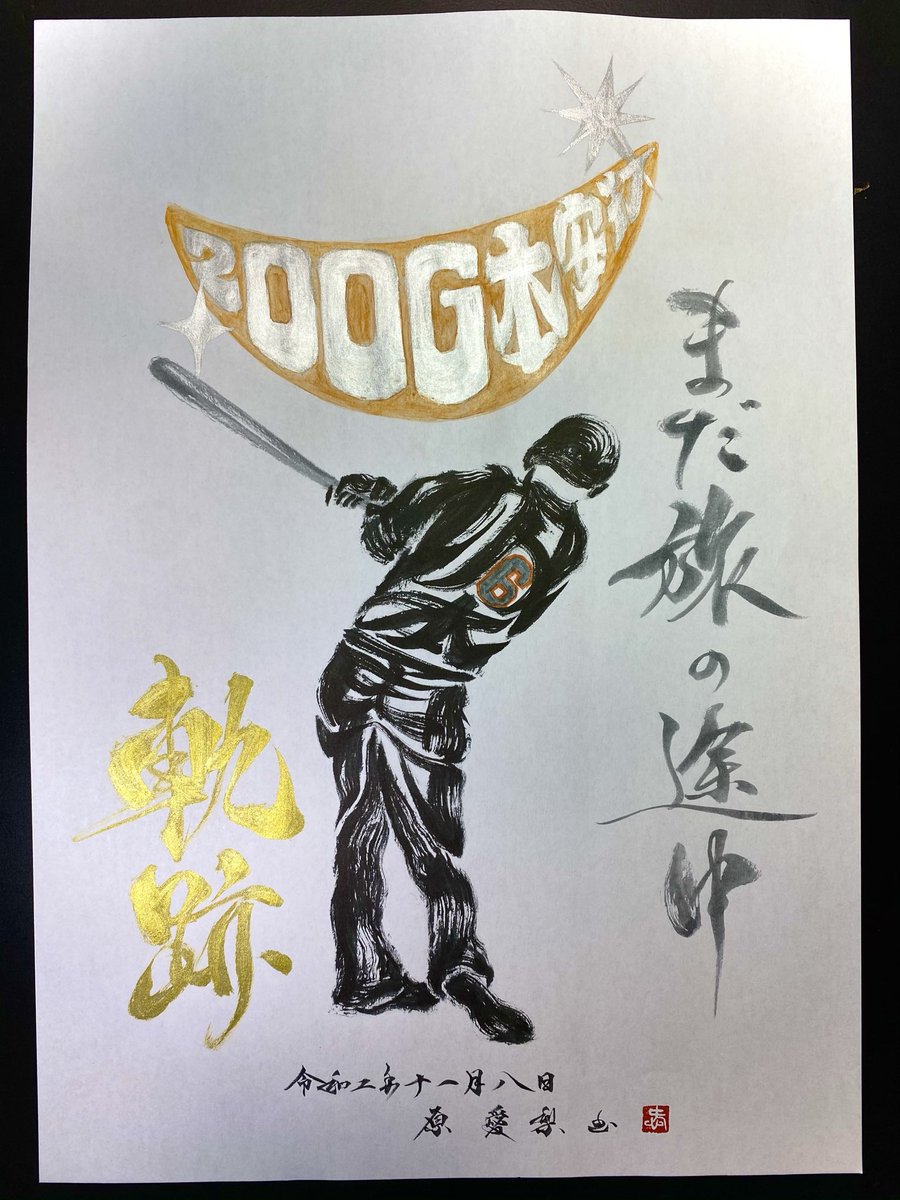 200G本安打
まだ旅の途中
6
軌跡
令和二年十一月八日
原 愛梨